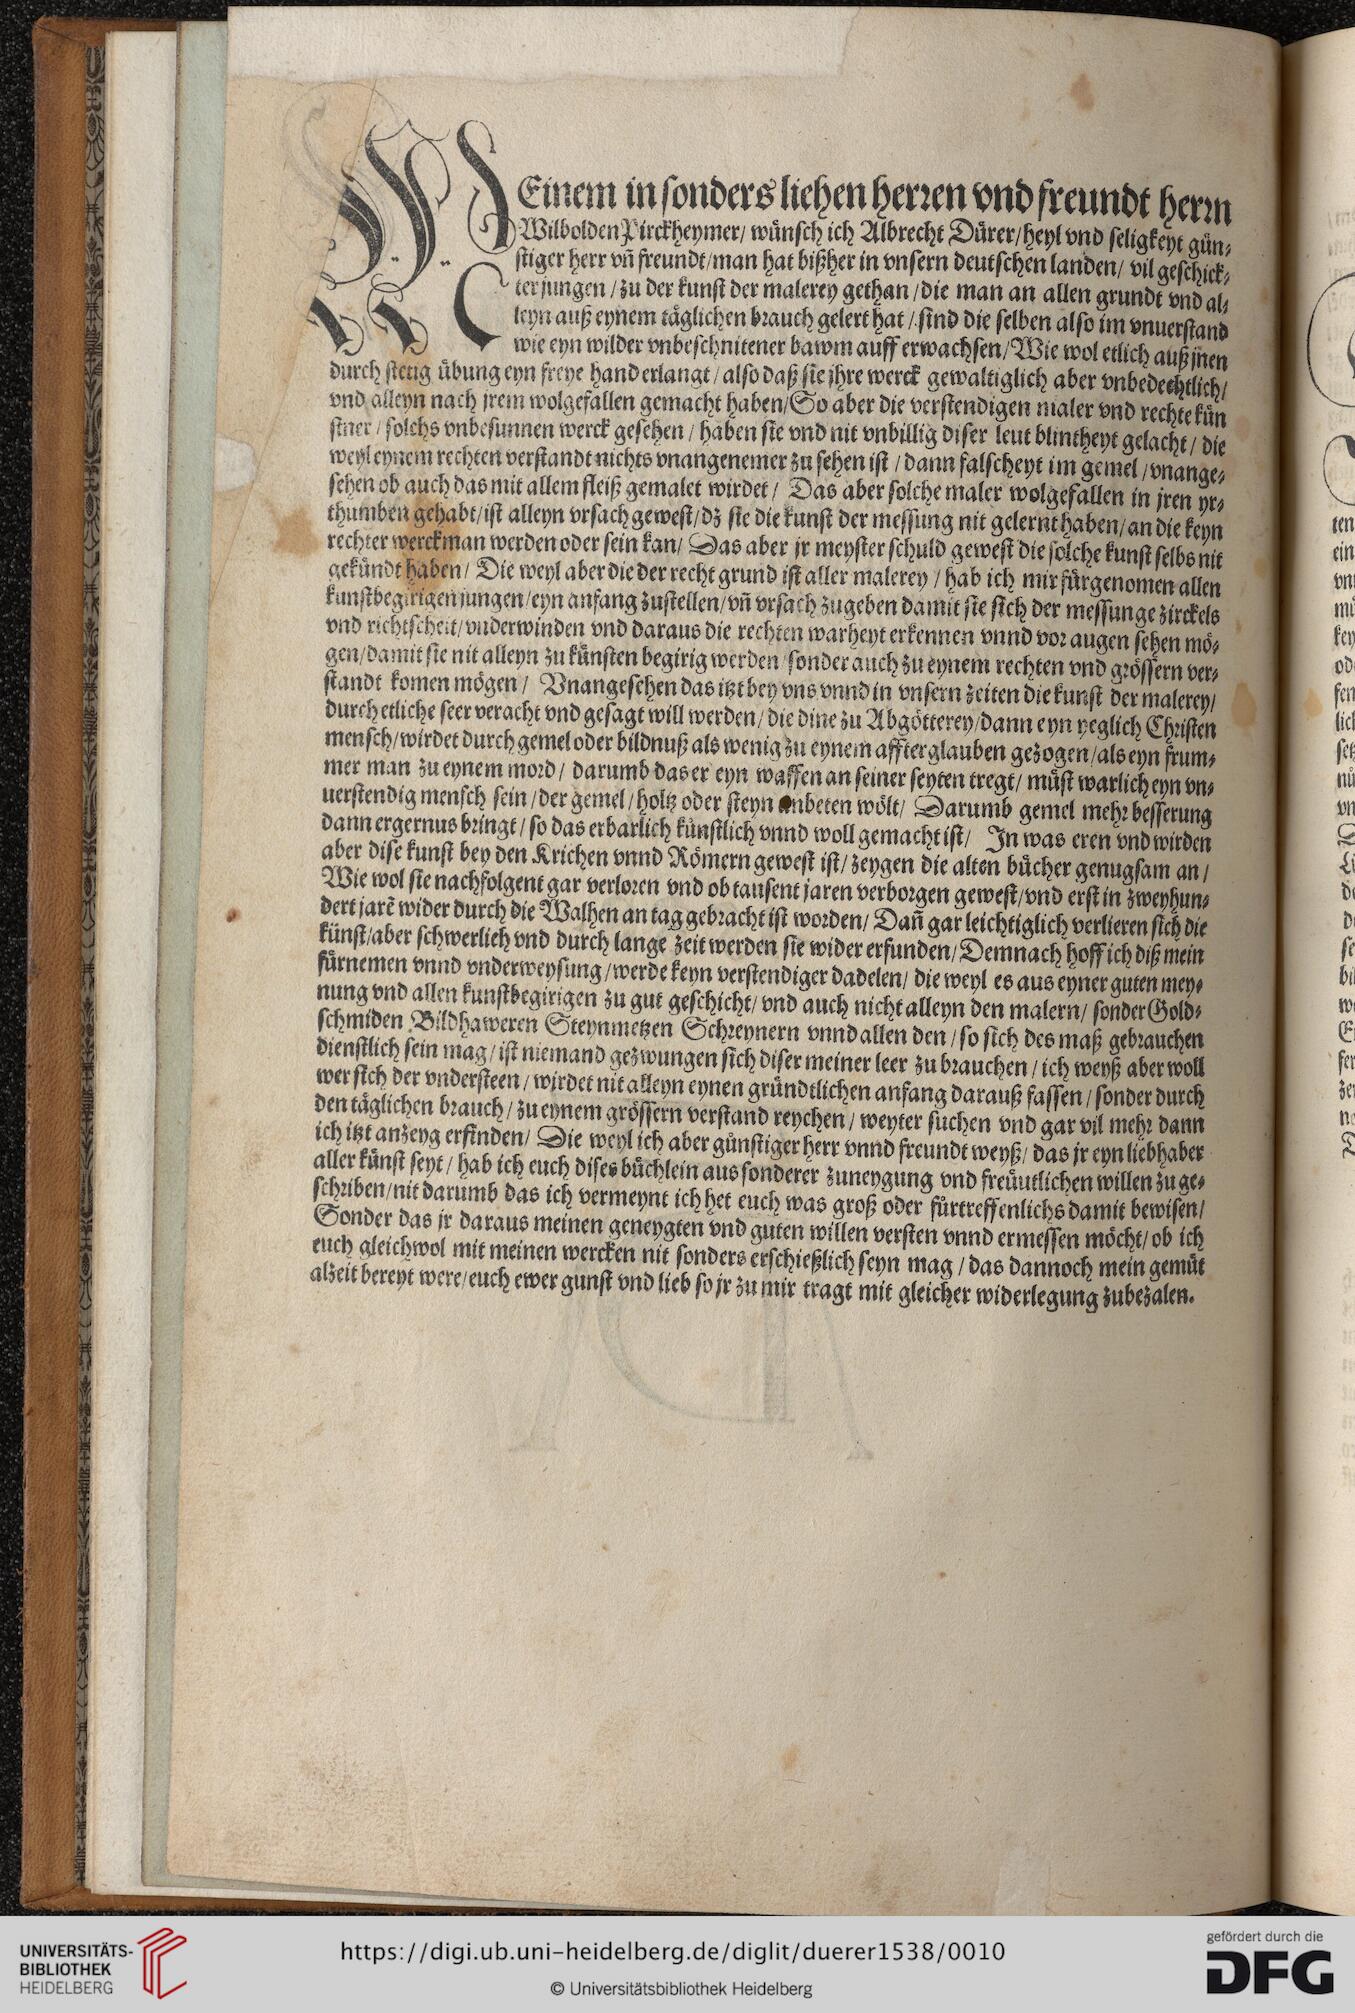 MEinem in sonders liehen herren vnd freundt herrn
Wilbolden Pirckheymer/ wünsch ich Albrecht Dürer/ heyl vnd seligkeyt gün-
stiger herr vñ freundt/ man hat bißher in vnsern deutschen landen/ vil geschick-
ter jungen/ zu der kunst der malerey gethan/ die man an allen grundt vnd al-
leyn auß eynem täglichen brauch gelert hat/ sind die selben also im vnuerstand
wie eyn wilder vnbeschnitener bawm auff erwachsen/ Wie wol etlich auß jnen
durch stetig übung eyn freye hand erlangt/ also daß sie jhre werck gewaltiglich aber vnbedechtlich/
vnd alleyn nach jrem wolgefallen gemacht haben/ So aber die verstendigen maler vnd rechte kün
stner/ solchs vnbesunnen werck gesehen/ haben sie vnd nit vnbillig diser leut blintheyt gelacht/ die
weyl eynem rechten verstandt nichts vnangenemer zu sehen ist/ dann falscheyt im gemel/ vnange-
sehen ob auch das mit allem fleiß gemalet wirdet/ Das aber solche maler wolgefallen in jren yr-
thumben gehabt/ ist alleyn vrsach gewest/ dz sie die kunst der messung nit gelernt haben/ an die keyn
rechter werckman werden oder sein kan/ Das aber jr meyster schuld gewest die solche kunst selbs nit
gekündt haben/ Die weyl aber die der recht grund ist aller malerey/ hab ich mir fürgenomen allen
kunstbegirigen jungen/ eyn anfang zustellen/ vñ vrsach zugeben damit sie sich der messunge zirckels
vnd richtscheit/ vnderwinden vnd daraus die rechten warheyt erkennen vnnd vor augen setzen mö-
gen/ damit sie nit alleyn zu künsten begirig werden/ sonder auch zu eynem rechten vnd grössern ver-
standt komen mögen/ Vnangesehen das itzt bey vns vnnd in vnsern zeiten die kunst der malerey/
durch etliche seer veracht vnd gesagt will werden/ die dine zu Abgötterey/ dann eyn yeglich Christen
mensch/ wirdet durch gemel oder bildnuß als wenig zu eynem affterglauben gezogen/ als eyn frum-
mer man zu eynem mord/ darumb das er eyn waffen an seiner seyten tregt/ müst warlich eyn vn-
uerstendig mensch sein/ der gemel/ holtz oder steyn anbeten wölt/ Darumb gemel mehr besserung
dann ergernus bringt/ so das erbarlich künstlich vnnd woll gemacht ist/ In was eren vnd wirden
aber dise kunst bey den Krichen vnnd Römern gewest ist/ zeygen die alten bücher genugsam an/
Wie wol sie nachfolgent gar verloren vnd ob tausent jaren verborgen gewest/ vnd erst in zweyhun-
dert jarẽ wider durch die Walhen an tag gebracht ist worden/ Dañ gar leichtiglich verlieren sich die
künst/ aber schwerlich vnd durch lange zeit werden sie wider erfunden/ Demnach hoff ich diß mein
fürnemen vnnd vnderweysung/ werde keyn verstendiger dadelen/ die weyl es aus eyner guten mey-
nung vnd allen kunstbegirigen zu gut geschicht/ vnd auch nicht alleyn den malern/ sonder Gold-
schmiden Bildhaweren Steynmetzen Schreynern vnnd allen den/ so sich des maß gebrauchen
dienstlich sein mag/ ist niemand gezwungen sich diser meiner leer zu brauchen/ ich weyß aber woll
wer sich der vndersteen/ wirdet nit alleyn eynen gründtlichen anfang darauß fassen/ sonder durch
den täglichen brauch/ zu eynem grössern verstand reychen/ weyter suchen vnd gar vil mehr dann
ich itzt anzeyg erfinden/ Die weyl ich aber günstiger herr vnnd freundt weyß/ das jr eyn liebhaber
aller künst seyt/ hab ich euch dises büchlein aus sonderer zuneygung vnd freüutlichen willen zu ge-
schriben/ nit darumb das ich vermeynt ich het euch was groß oder fürtreffenlichs damit bewisen/
Sonder das jr daraus meinen geneygten vnd guten willen versten vnnd ermessen möcht/ ob ich
euch gleichwol mit meinen wercken nit sonders erschießlich seyn mag/ das dannoch mein gemüt
alzeit bereyt were/ euch ewer gunst vnd lieb so jr zu mir tragt mit gleicher widerlegung zubezalen.
UNIVERSITÄTS-
BIBLIOTHEK
HEIDELBERG
https://digi.ub.uni-heidelberg.de/diglit/duerer1538/0010
© Universitätsbibliothek Heidelberg
gefördert durch die
DFG